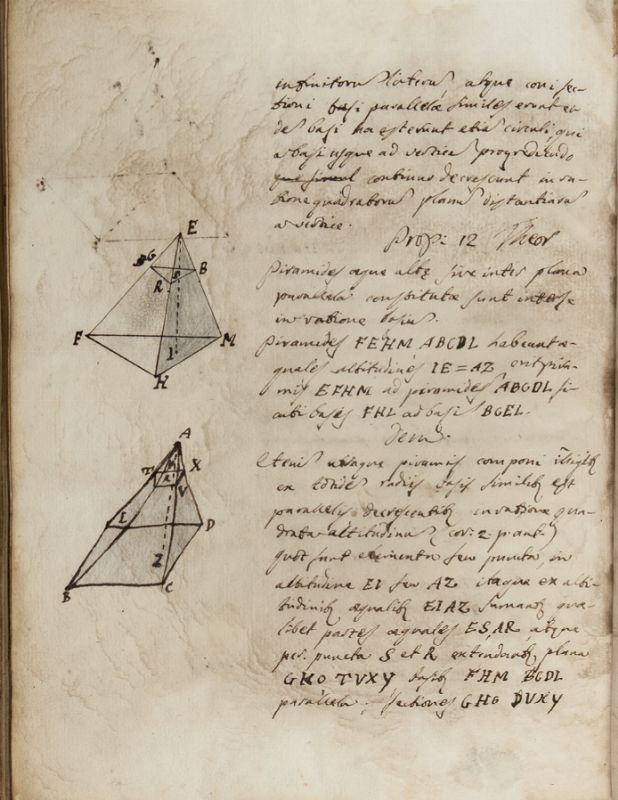 infinitorū laterū, atque coni sec-
tioni basi parallelæ similes erunt
basi
a basi usque ad vertice progrediendo
continuo decrescunt in ra-
tione quadratorū planū distantiarū
a vertice.
Prop: 12 Theor
Piramides æque altę sive inter plana
parallela constitutæ sunt inter se
in ratione basiū.
Piramides FEHM ABCDL habeant æ-
quales altitudines IE = AZ erit pira-
mis EFHM ad piramidē ABGDL si-
cuti basis FHL ad basī BGEL.
Dem:
Etenī utraque piramis componi
ex basis similibꝫ est
parallelis decrescentibꝫ in ratione qua-
drata altitudinū (cor: 2 p: ant:)
quot sunt elementa seu puncta, in
altitudine EI seu AZ itaque ex alti-
tudinibꝫ æqualibꝫ EI AZ sumantꝫ quæ-
libet partes æquales ES, AR, atque
per puncta S et R extendantꝫ plana
GHO TVXY basibꝫ FHM BCDL
parallela; sectiones GHO DVXY
E
G
B
S
R
F
M
I
H
A
T
X
R
V
L
D
Z
B
C